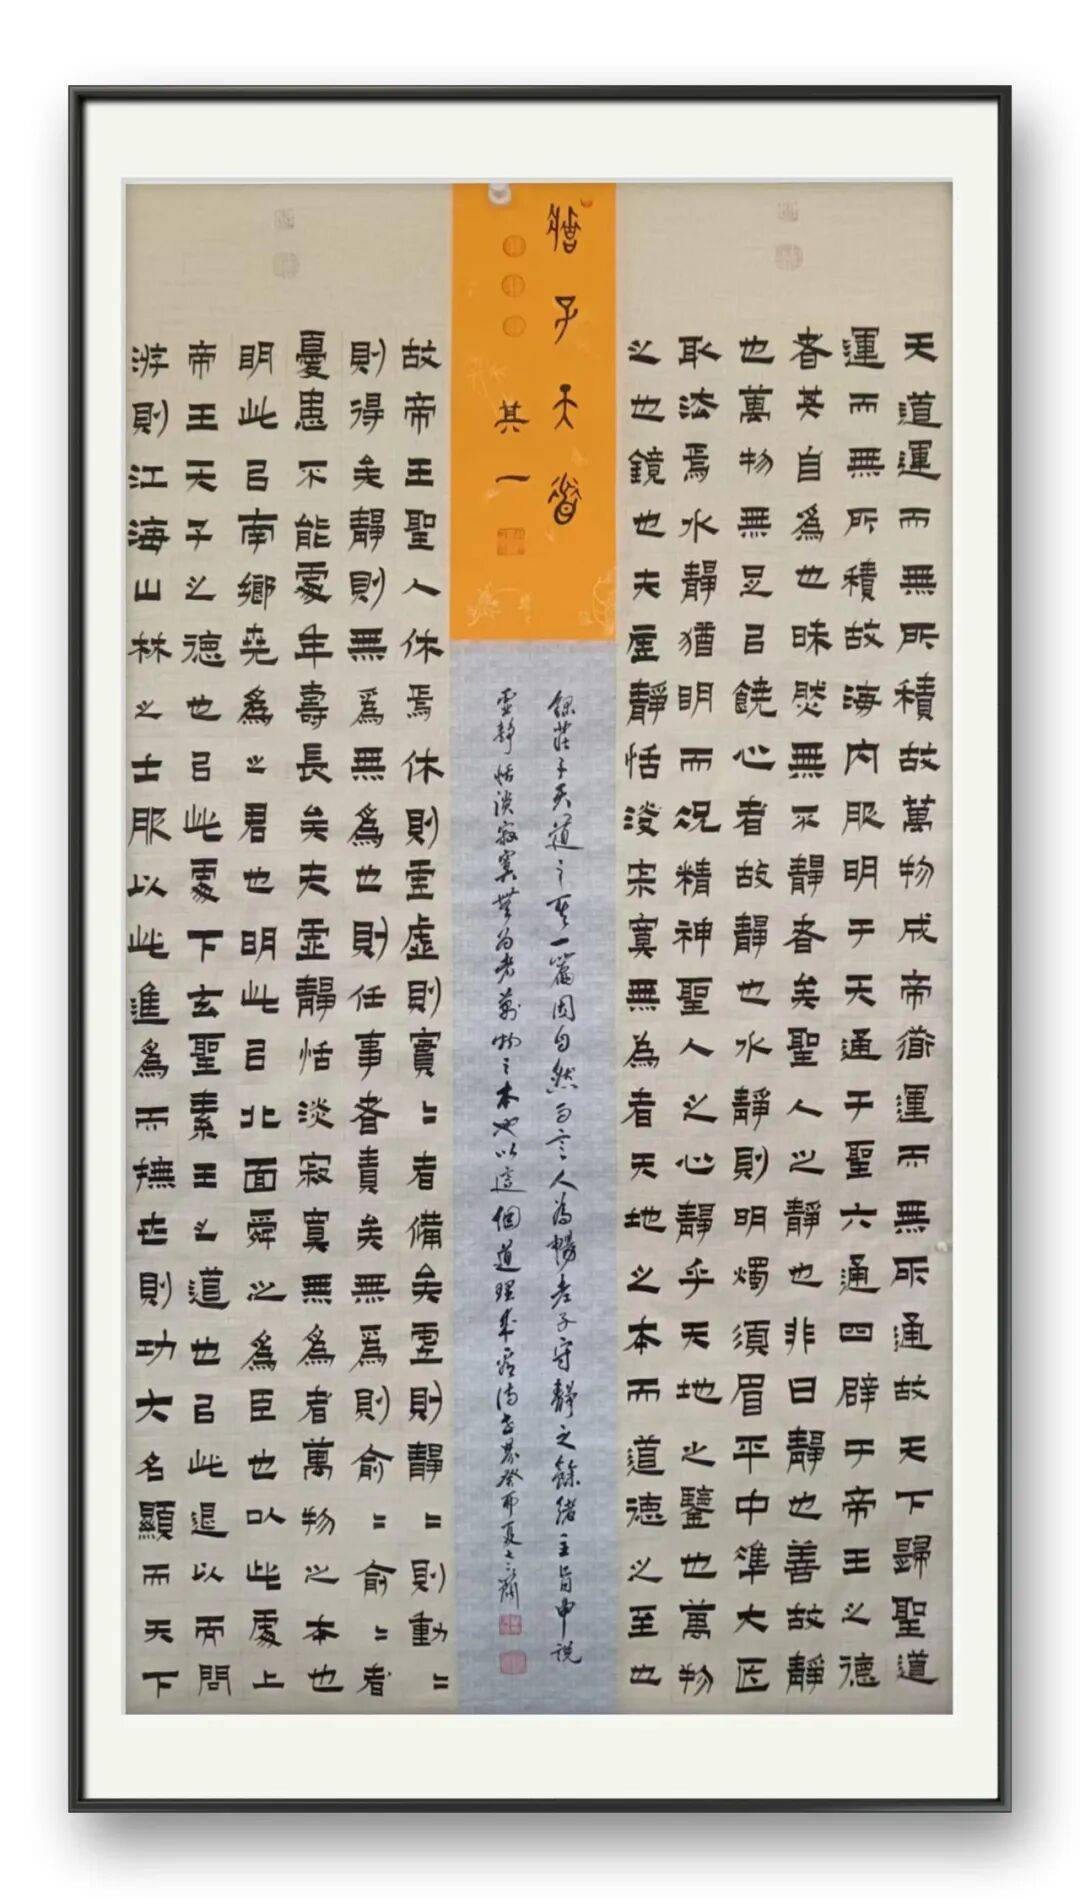 天道運而無所積故萬物成帝道運而無所通故天下歸聖道
運而無所積故海內服明于天通于聖六通四辟于帝王之德
者其自爲也昧然無不靜者矣聖人之靜也非曰靜也善故靜
也萬物無足以饒心者故靜也水靜則明燭須眉平中準大匠
取法焉水靜猶明而況精神聖人之心靜乎天地之鑒也萬物
之也鏡也夫虛靜恬淡寂寞無為者天地之本而道德之至也
莊子天道
其一
錄莊子天道之一篇因自然而言人為暢老子守靜之餘緒主旨申説
虛靜恬淡寂寞無為者萬物之本也以這個道理來癸卯夏
故帝王聖人休焉休則虛虛則實〻者備矣虛則靜〻則動〻
則得矣靜則無爲無爲也則任事者責矣無爲則俞〻俞〻者
憂患不能處年壽長矣夫虛靜恬淡寂寞無爲者萬物之本也
明此以南鄉堯爲之君也明此以北面舜之爲臣也以此處上
帝王天子之德也以此處下玄聖素王之道也以此退以而問
游則江海山林之士服以此進爲而撫世則功大名顯而天下